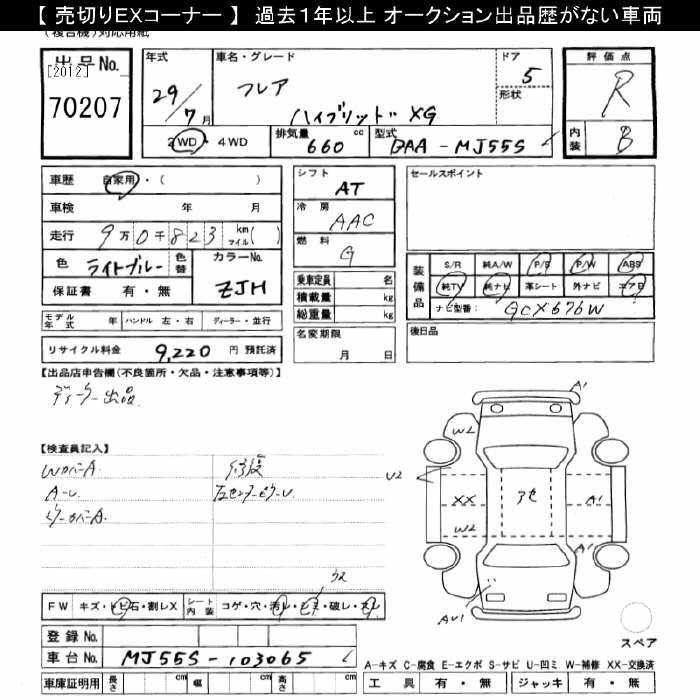 【 売切りEXコーナー 】 過去1年以上 オークション出品歴がない車両
(複合機)対応用紙
出品No.
[2012]
70207
年式
29/7月
車名・グレード
フレア
ハイブリッド XG
ドア
5
形状
評価点
R
内装
B
2WD・4WD
排気量
660 cc
型式
DAA-MJ55S
車歴 自家用・( )
車検 年 月
走行 9万0千823 km マイル( )
色 ライトブルー 色替
カラーNo.
ZJH
保証書 有・無
シフト
AT
冷房
AAC
燃料
G
乗車定員 名
積載量 kg
総重量 kg
名変期限
月 日
セールスポイント
装備品
S/R 純A/W P/S P/W ABS
純TV 純ナビ 革シート 外ナビ エアB
ナビ型番: GCX676W
後日品
モデル年式 年 ハンドル 左・右 ディーラー・並行
リサイクル料金 9,220 円 預託済
【出品店申告欄(不良箇所・欠品・注意事項等)】
ディーラー出品
【検査員記入】
WカバーA 修復
A-U 左センターピラーU
A1
W2
U2
XX
アセ
A1
W2
A1
AU1
FW キズ・トビ石・割レX シート内装 コゲ・穴・汚レ・シミ・破レ・スレ
登録No.
車台No. MJ55S-103065
車庫証明用 長さ cm 幅 cm 高さ cm
スペア
A-キズ C-腐食 E-エクボ S-サビ U-凹ミ W-補修 XX-交換済
工具 有・無 ジャッキ 有・無